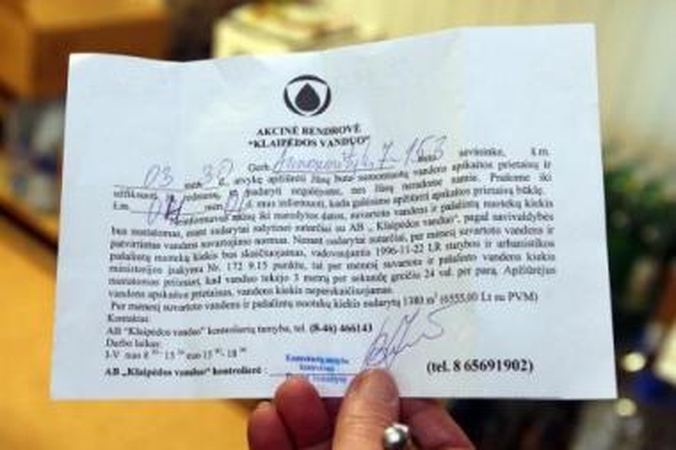 AKCINĖ BENDROVĖ
"KLAIPĖDOS VANDUO"
03 mėn. 30 d. Gerb. 7-153 savininke, š.m.
atvykę apžiūrėti Jūsų bute sumontuotų vandens apskaitos prietaisų ir
sudaryti negalėjome, nes Jūsų neradome namie. Prašome iki
š.m. mėn. d. mus informuoti, kada galėsime apžiūrėti apskaitos prietaisų būklę.
iki nurodytos datos, suvartoto vandens ir pašalintų nuotekų kiekis
bus nustatomas, esant sudarytai rašytinei sutarčiai su AB „ Klaipėdos vanduo", pagal savivaldybės
patvirtintas vandens suvartojimo normas. Nesant sutarčiai, per mėnesį suvartoto vandens ir
pašalintų nuotekų kiekis bus skaičiuojamas, vadovaujantis 1996-11-22 LR statybos ir urbanistikos
ministerijos įsakymu Nr. 172 9.15 punktu, tai per mėnesį suvartoto ir pašalinto vandens kiekis
nustatomas priimant, kad vanduo tekėjo 3 metrų per sekundę greičiu 24 val. per parą. Apžiūrėjus
vandens apskaitos prietaisus, vandens kiekis neperskaičiuojamas.
Per mėnesį suvartoto vandens ir pašalintų nuotekų kiekis sudarytų 1303 m³ (6555,00 Lt su PVM)
Kontaktai:
AB "Klaipėdos vanduo" kontrolierių tarnyba, tel. (8-46) 466143
Darbo laikas:
I-V nuo 8
AB „Klaipėdos vanduo" kontrolierė : (tel. 8 65691902)